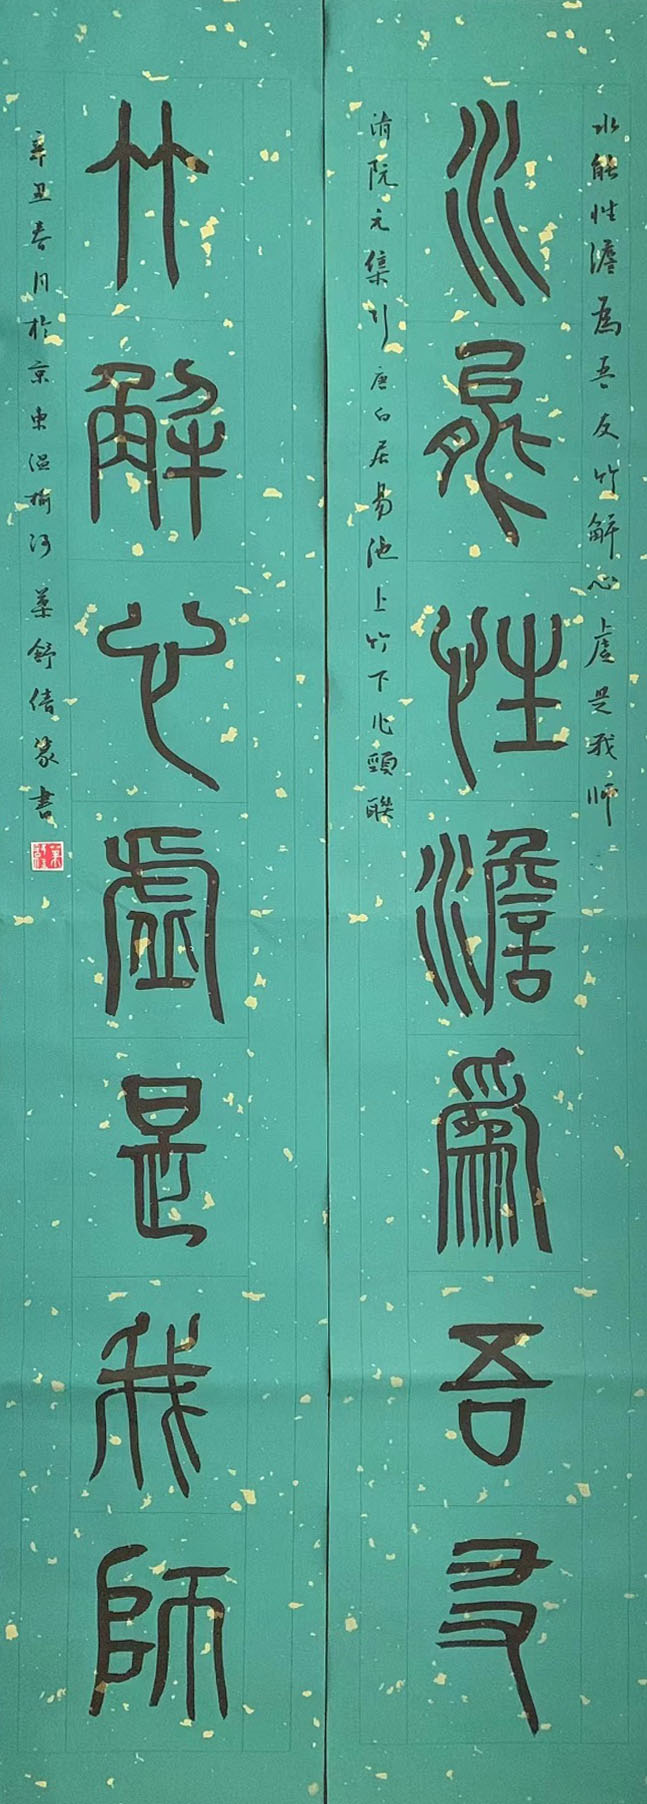 水能性澹為吾友竹解心虛是我師
水能性澹為吾友
清阮元集引唐白居易池上竹下作頸聯
竹解心虛是我師
辛丑春月於京東溫榆河葉舒倩篆書